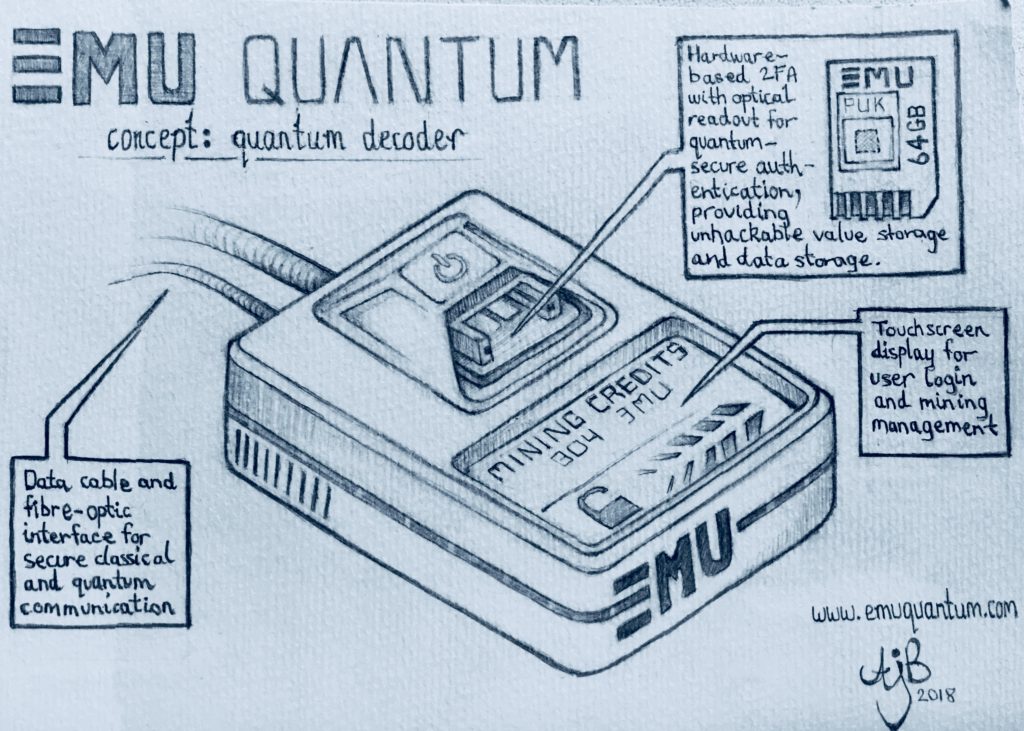 EMU QUANTUM
concept: quantum decoder
Hardware-
based 2FA
with optical
readout for
quantum-
secure auth-
entication,
providing
unhackable value storage
and data storage.
EMU
PUK
64GB
Touchscreen
display for
user login
and mining
management
MINING CREDITS
304 EMU
Data cable and
fibre-optic
interface for
secure classical
and quantum
communication
EMU
www.emuquantum.com
AJB
2018